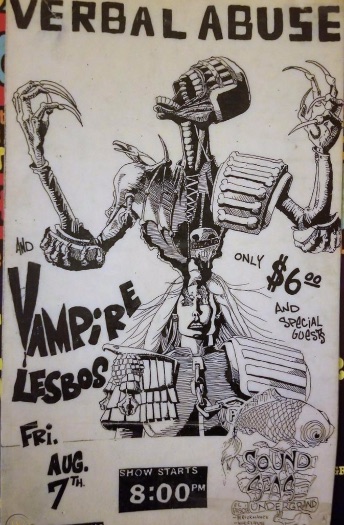 VERBAL ABUSE
AND
VAMPiRE
LESBOS
ONLY
$6.00
AND
SPECIAL
GUESTS
FRI.
AUG.
7TH.
SHOW STARTS
8:00PM
SOUND
UNDERGROUND